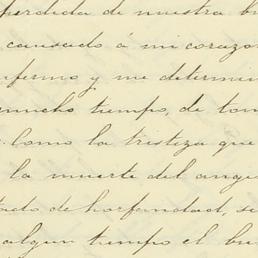 perdida de nuestra bu
causado á mi corazon
nfermo y me determin
mucho tiempo, de tom
Como la tristeza que
la muerte del ange
tado de horfandad, se
algun tiempo el bu